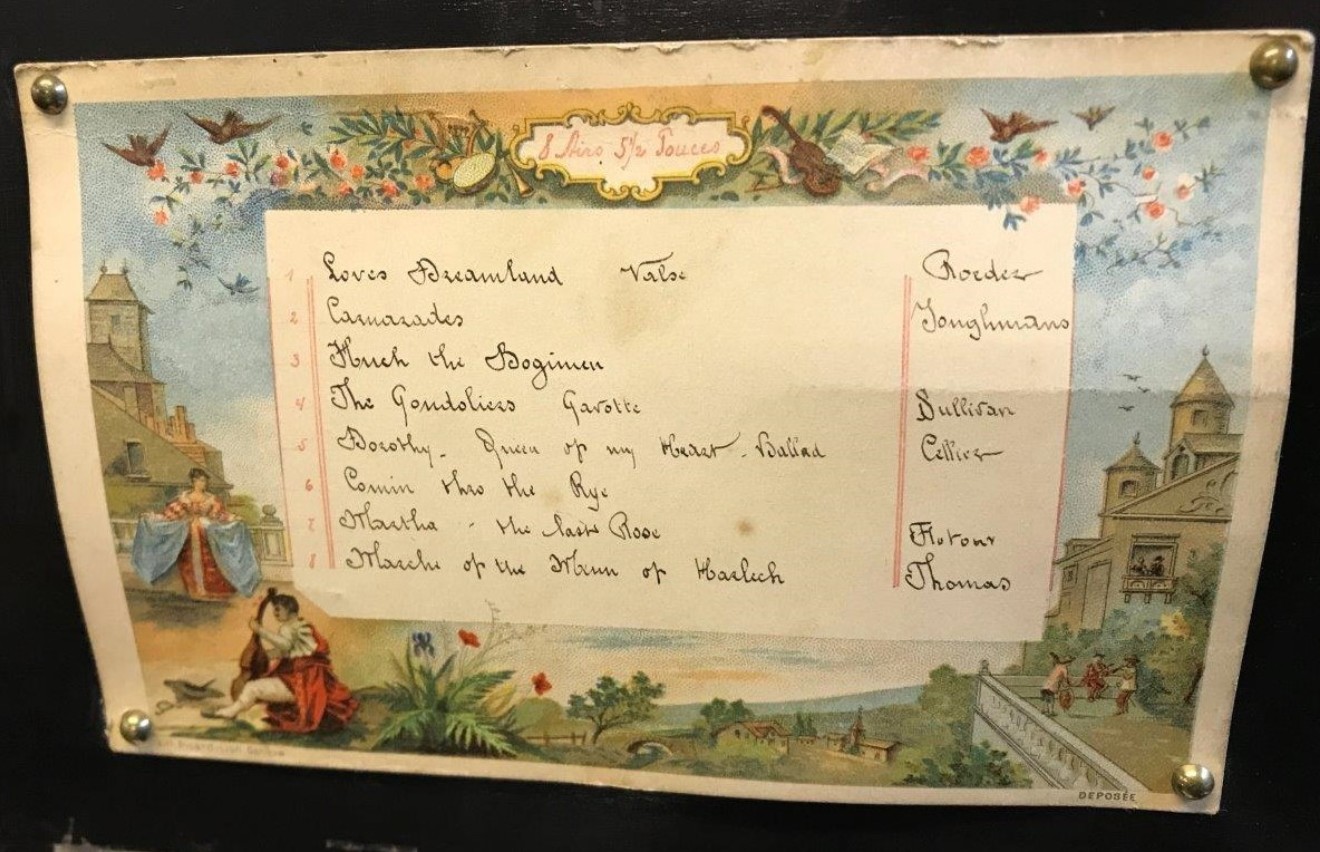 8 Airs 5 1/2 Pouces
1 Loves Dreamland Valse Roeder
2 Camarades Jonghmans
3 Hush the Bogimen
4 The Gondoliers Gavotte Sullivan
5 Dorothy - Queen of my Heart - Ballad Cellier
6 Comin thro the Rye
7 Martha - the last Rose Flotow
8 Marche of the Menn of Harlech Thomas
DEPOSÉE